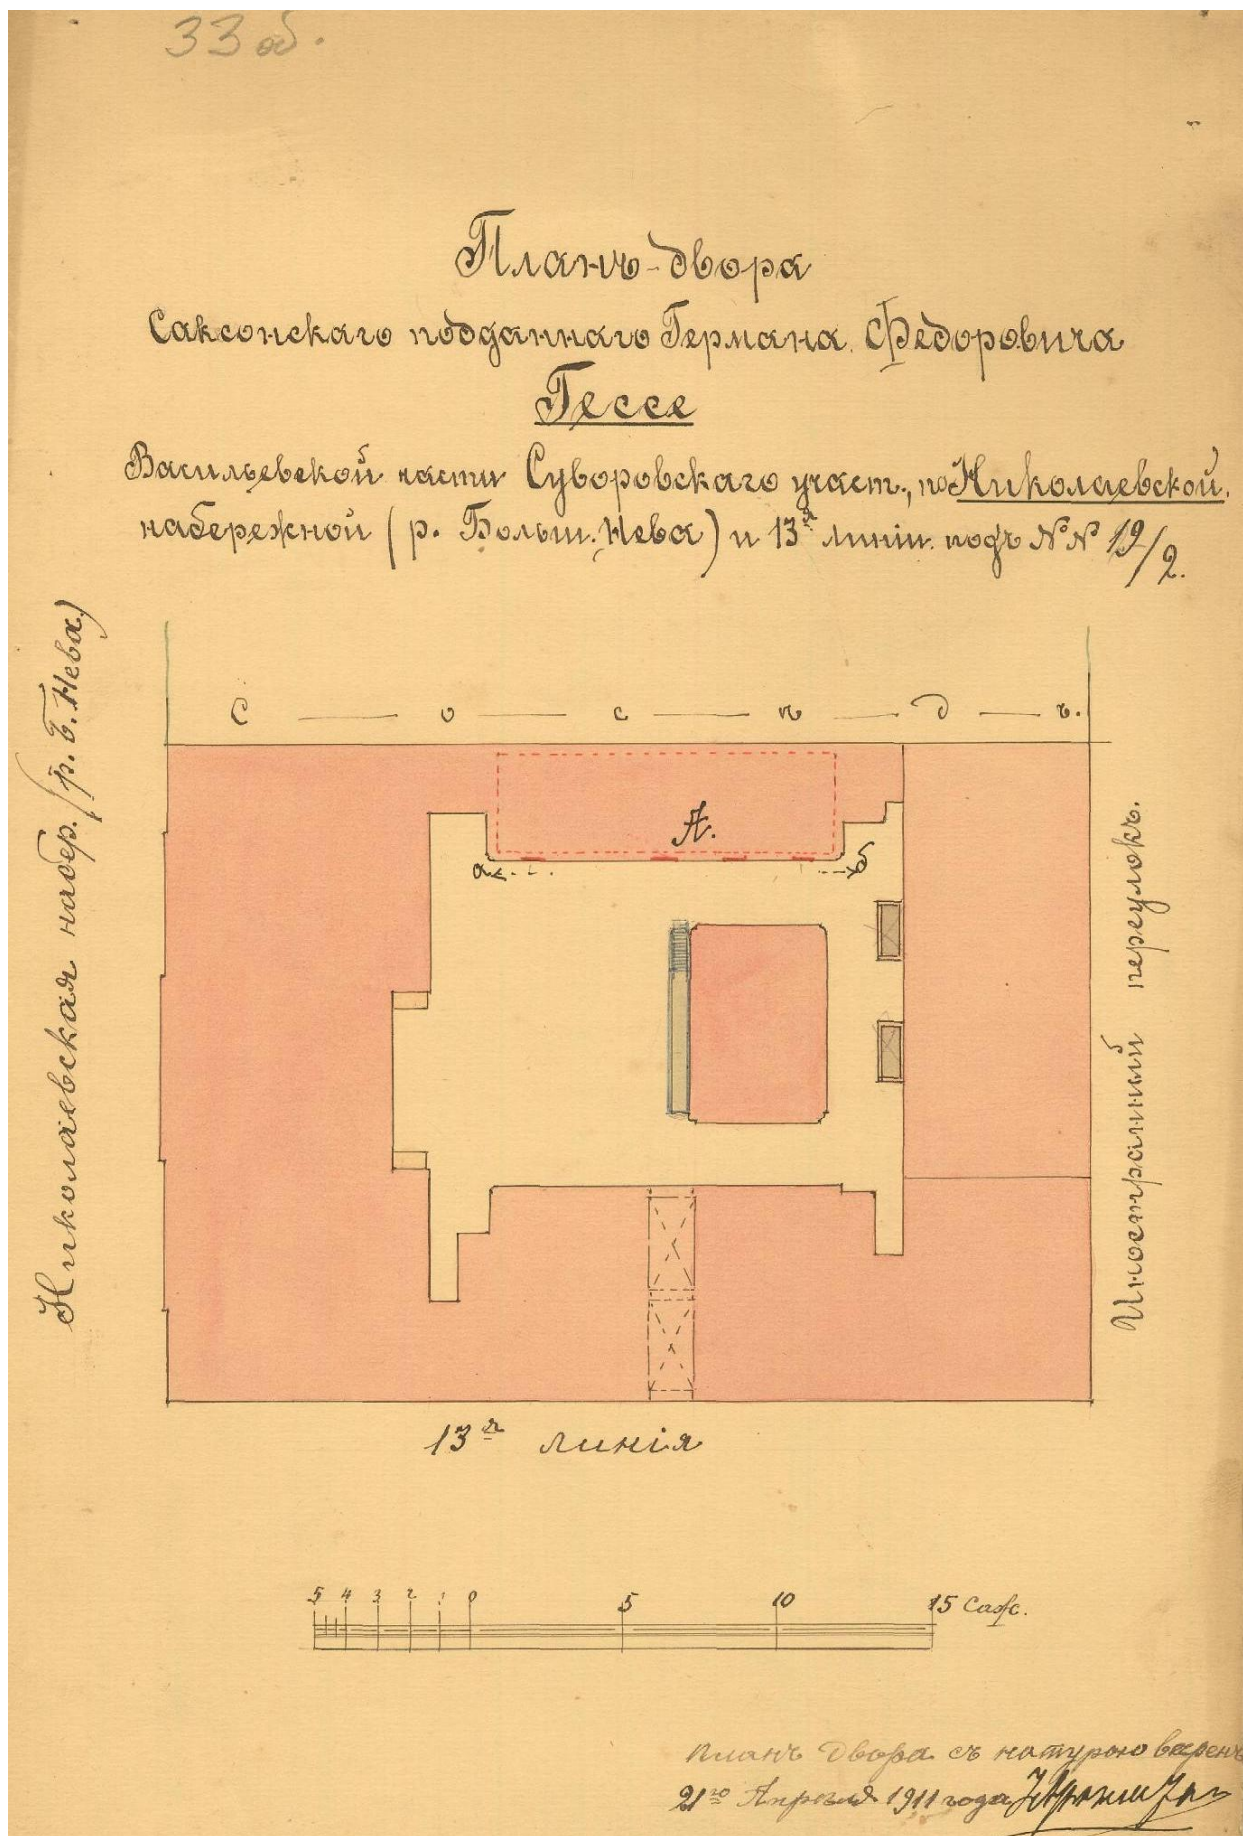 33 об.
Планъ-двора
Саксонскаго подданнаго Германа Федоровича
Гессе
Васильевской части Суворовскаго участ., по Николаевской
набережной (р. Больш. Нева) и 13я линіи подъ №№ 19/2.
Николаевская набер. (р. Б. Нева)
С — о — с — ѣ — д — ъ.
А.
а
б
Иностранный переулокъ.
13я линія
5 4 3 2 1 0 5 10 15 Саж.
Планъ двора съ натурою веренъ
21го Апреля 1911 года